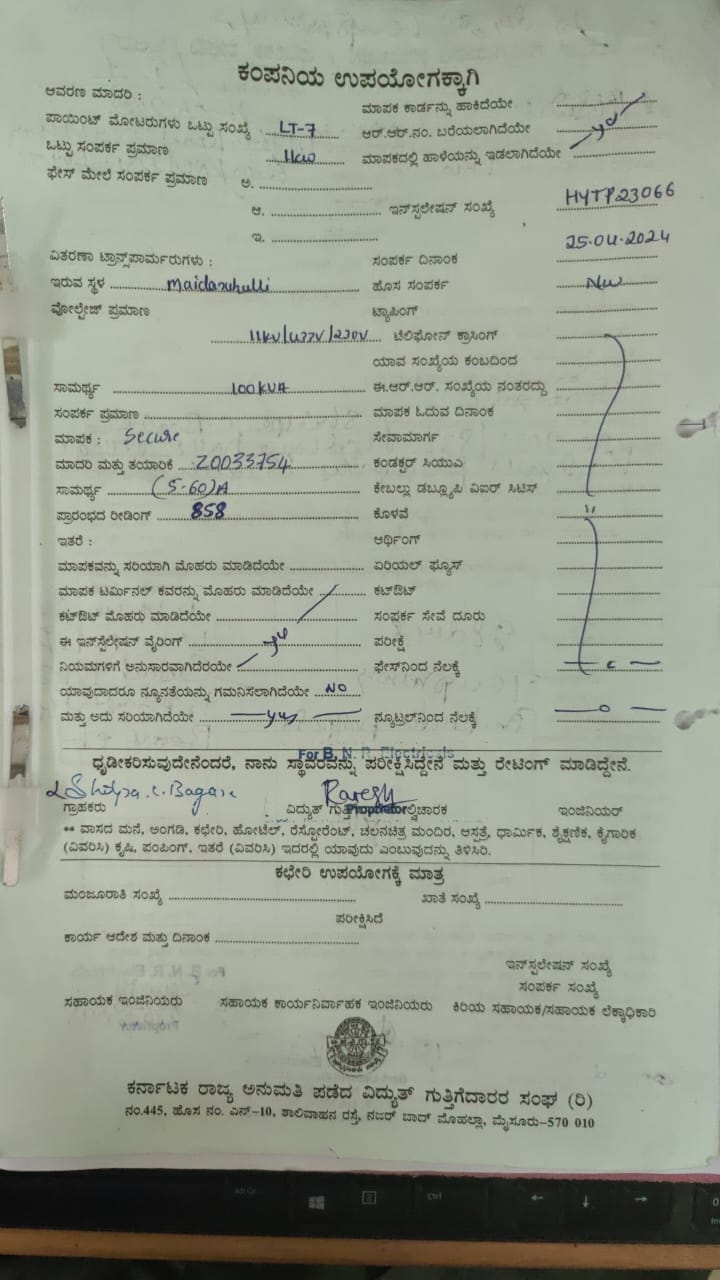 ಕಂಪನಿಯ ಉಪಯೋಗಕ್ಕಾಗಿ
ಆವರಣ ಮಾದರಿ :
ಮಾಪಕ ಕಾರ್ಡನ್ನು ಹಾಕಿದೆಯೇ
ಪಾಯಿಂಟ್ ಮೋಟರುಗಳು ಒಟ್ಟು ಸಂಖ್ಯೆ LT-7 ಆರ್.ಆರ್.ನಂ. ಬರೆಯಲಾಗಿದೆಯೇ
ಒಟ್ಟು ಸಂಪರ್ಕ ಪ್ರಮಾಣ 11kw ಮಾಪಕದಲ್ಲಿ ಹಾಳೆಯನ್ನು ಇಡಲಾಗಿದೆಯೇ
ಫೇಸ್ ಮೇಲೆ ಸಂಪರ್ಕ ಪ್ರಮಾಣ ಅ.
ಆ. ಇನ್‌ಸ್ಟಲೇಷನ್ ಸಂಖ್ಯೆ HYTP23066
ಇ.
ವಿತರಣಾ ಟ್ರಾನ್ಸ್‌ಪಾರ್ಮರುಗಳು : ಸಂಪರ್ಕ ದಿನಾಂಕ 25.04.2024
ಇರುವ ಸ್ಥಳ ಹೊಸ ಸಂಪರ್ಕ
ವೋಲ್ಟೇಜ್ ಪ್ರಮಾಣ ಟ್ಯಾಪಿಂಗ್
11kV/433V/230V ಟೆಲಿಫೋನ್ ಕ್ರಾಸಿಂಗ್
ಯಾವ ಸಂಖ್ಯೆಯ ಕಂಬದಿಂದ
ಸಾಮರ್ಥ್ಯ 100KVA ಈ.ಆರ್.ಆರ್. ಸಂಖ್ಯೆಯ ನಂತರದ್ದು
ಸಂಪರ್ಕ ಪ್ರಮಾಣ ಮಾಪಕ ಓದುವ ದಿನಾಂಕ
ಮಾಪಕ : Secure ಸೇವಾಮಾರ್ಗ
ಮಾದರಿ ಮತ್ತು ತಯಾರಿಕೆ 20033754 ಕಂಡಕ್ಟರ್ ಸಿಯುಎ
ಸಾಮರ್ಥ್ಯ (5-60)A ಕೇಬಲ್ಲು ಡಬ್ಲ್ಯೂಪಿ ವಿಐರ್ ಸಿಟಿಸ್
ಪ್ರಾರಂಭದ ರೀಡಿಂಗ್ 858 ಕೊಳವೆ
ಇತರೆ : ಆರ್ಥಿಂಗ್
ಮಾಪಕವನ್ನು ಸರಿಯಾಗಿ ಮೊಹರು ಮಾಡಿದೆಯೇ ಏರಿಯಲ್ ಫ್ಯೂಸ್
ಮಾಪಕ ಟರ್ಮಿನಲ್ ಕವರನ್ನು ಮೊಹರು ಮಾಡಿದೆಯೇ ಕಟ್‌ಔಟ್
ಕಟ್‌ಔಟ್ ಮೊಹರು ಮಾಡಿದೆಯೇ ಸಂಪರ್ಕ ಸೇವೆ ದೂರು
ಈ ಇನ್‌ಸ್ಟೆಲೇಷನ್ ವೈರಿಂಗ್ ಪರೀಕ್ಷೆ
ನಿಯಮಗಳಿಗೆ ಅನುಸಾರವಾಗಿದೆರಯೇ ಫೇಸ್‌ನಿಂದ ನೆಲಕ್ಕೆ
ಯಾವುದಾದರೂ ನ್ಯೂನತೆಯನ್ನು ಗಮನಿಸಲಾಗಿದೆಯೇ NO
ಮತ್ತು ಅದು ಸರಿಯಾಗಿದೆಯೇ yes ನ್ಯೂಟ್ರಲ್‌ನಿಂದ ನೆಲಕ್ಕೆ
For B. N. R. Electricals
ಧೃಡೀಕರಿಸುವುದೇನೆಂದರೆ, ನಾನು ಸ್ಥಾವರವನ್ನು ಪರೀಕ್ಷಿಸಿದ್ದೇನೆ ಮತ್ತು ರೇಟಿಂಗ್ ಮಾಡಿದ್ದೇನೆ.
ಗ್ರಾಹಕರು ವಿದ್ಯುತ್ Proprietor ಇಂಜಿನಿಯರ್
** ವಾಸದ ಮನೆ, ಅಂಗಡಿ, ಕಛೇರಿ, ಹೋಟೆಲ್, ರೆಸ್ಟೋರೆಂಟ್, ಚಲನಚಿತ್ರ ಮಂದಿರ, ಆಸ್ಪತ್ರೆ, ಧಾರ್ಮಿಕ, ಶೈಕ್ಷಣಿಕ, ಕೈಗಾರಿಕ
(ವಿವರಿಸಿ) ಕೃಷಿ, ಪಂಪಿಂಗ್, ಇತರೆ (ವಿವರಿಸಿ) ಇದರಲ್ಲಿ ಯಾವುದು ಎಂಬುವುದನ್ನು ತಿಳಿಸಿರಿ.
ಕಛೇರಿ ಉಪಯೋಗಕ್ಕೆ ಮಾತ್ರ
ಮಂಜೂರಾತಿ ಸಂಖ್ಯೆ ಖಾತೆ ಸಂಖ್ಯೆ
ಪರೀಕ್ಷಿಸಿದೆ
ಕಾರ್ಯ ಆದೇಶ ಮತ್ತು ದಿನಾಂಕ
ಇನ್‌ಸ್ಟಲೇಷನ್ ಸಂಖ್ಯೆ
ಸಂಪರ್ಕ ಸಂಖ್ಯೆ
ಸಹಾಯಕ ಇಂಜಿನಿಯರು ಸಹಾಯಕ ಕಾರ್ಯನಿರ್ವಾಹಕ ಇಂಜಿನಿಯರು ಕಿರಿಯ ಸಹಾಯಕ/ಸಹಾಯಕ ಲೆಕ್ಕಾಧಿಕಾರಿ
ಕರ್ನಾಟಕ ರಾಜ್ಯ ಅನುಮತಿ ಪಡೆದ ವಿದ್ಯುತ್ ಗುತ್ತಿಗೆದಾರರ ಸಂಘ (ರಿ)
ನಂ.445, ಹೊಸ ನಂ. ಎನ್-10, ಶಾಲಿವಾಹನ ರಸ್ತೆ, ನಜರ್ ಬಾದ್ ಮೊಹಲ್ಲಾ, ಮೈಸೂರು-570 010
Alt Gr Ctrl